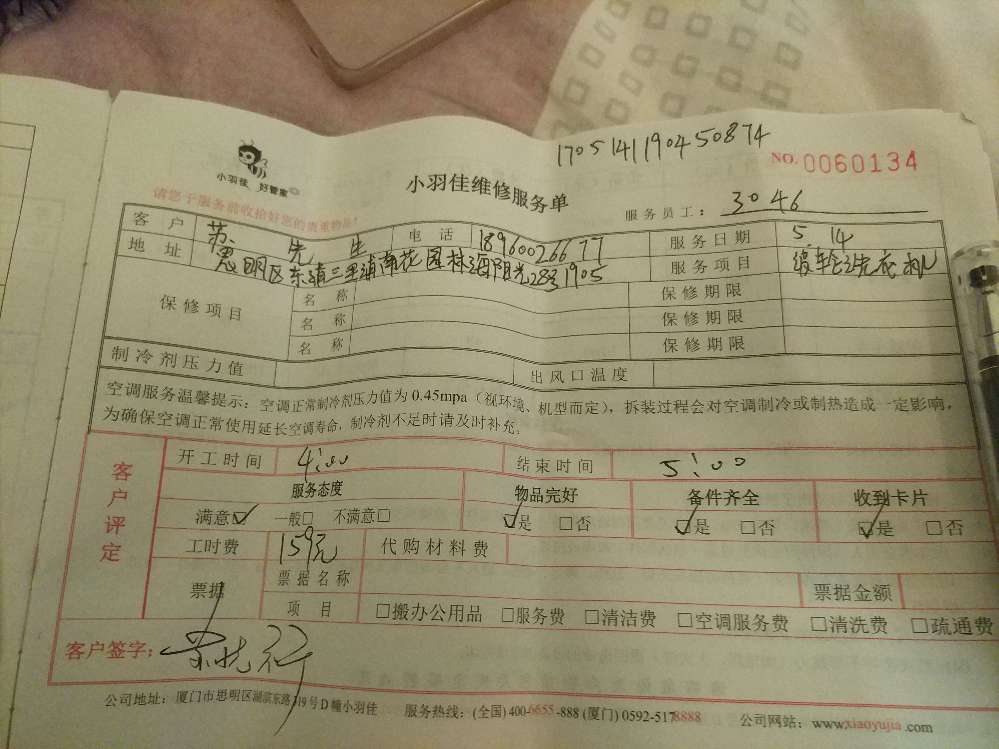 1705141190450874
NO. 0060134
小羽佳 好管家
小羽佳维修服务单
请您于服务前收拾好您的贵重物品!
服务员工: 3046
客户 苏 先生 电话 18960026677 服务日期 5.14
地址 思明区东浦三里浦南花园林海阳光2831905 服务项目 滚轮洗衣机
保修项目 名称 保修期限
名称 保修期限
名称 保修期限
制冷剂压力值 出风口温度
空调服务温馨提示:空调正常制冷剂压力值为0.45mpa(视环境、机型而定),拆装过程会对空调制冷或制热造成一定影响,
为确保空调正常使用延长空调寿命,制冷剂不足时请及时补充。
客户评定
开工时间 4:00 结束时间 5:00
服务态度 物品完好 备件齐全 收到卡片
满意☑ 一般□ 不满意□ ☑是 □否 ☑是 □否 ☑是 □否
工时费 159元 代购材料费
票据 票据名称 票据金额
项目 □搬办公用品 □服务费 □清洁费 □空调服务费 □清洗费 □疏通费
客户签字:
公司地址:厦门市思明区湖滨东路319号D幢小羽佳 服务热线:(全国)400-6655-888 (厦门)0592-5178888 公司网站:www.xiaoyujia.com